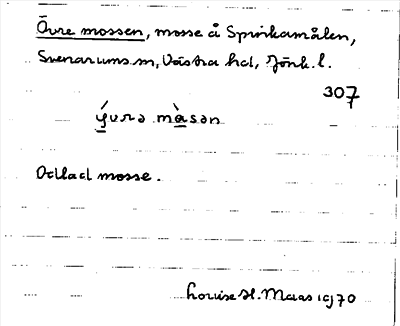 Övre mossen, mosse å Sprirkamålen,
Svenarums sn, Västra hd, Jönk. l.
307
ývrə màsən
Odlad mosse.
Louise H. Maas 1970